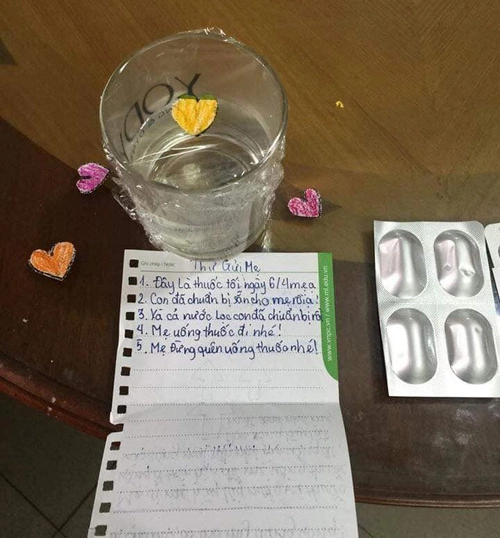 YOD
Ghi chép / Note:
Thư Gửi Mẹ
1. Đây Là thuốc tối ngày 6/4 mẹ ạ
2. Con đã chuẩn bị sẵn cho mẹ rồi ạ!
3. Và cả nước Lọc con đã chuẩn bị rồi
4. Mẹ uống thuốc đi nhé!
5. Mẹ Đừng quên uống thuốc nhé!
www.vnpc.vn / www.ml.edu.vn